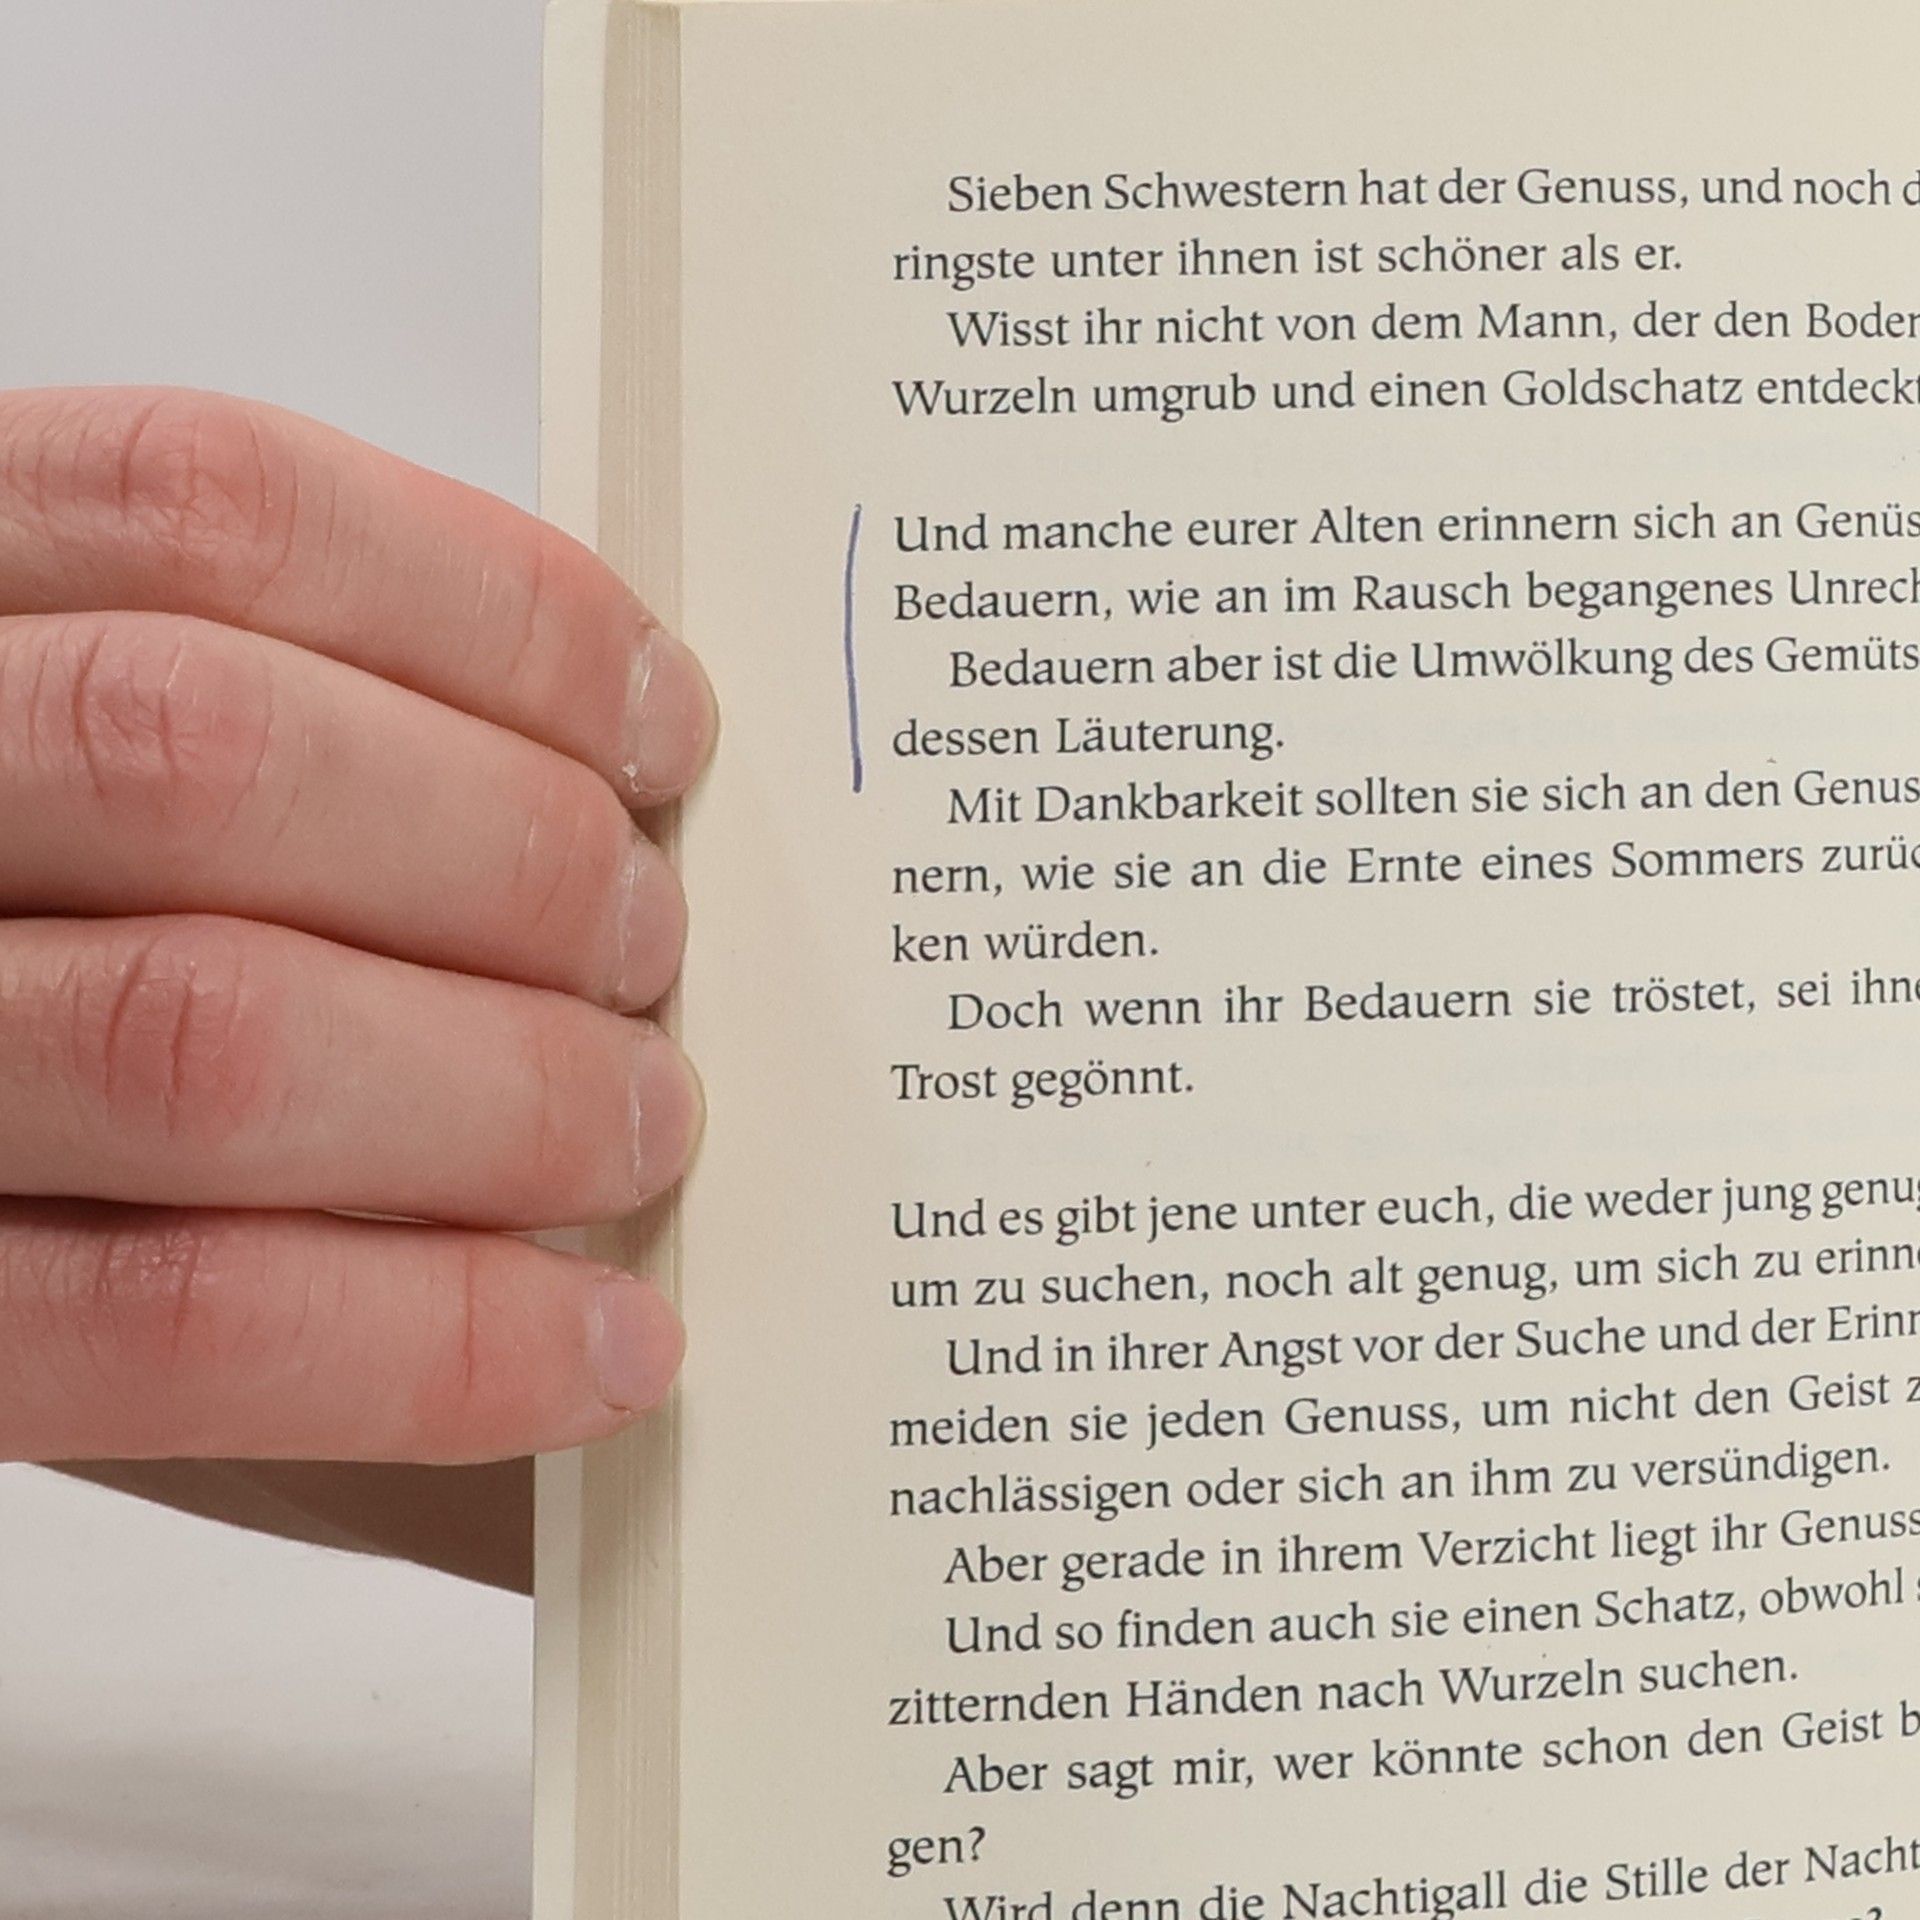 Sieben Schwestern hat der Genuss, und noch
ringste unter ihnen ist schöner als er.
Wisst ihr nicht von dem Mann, der den
Wurzeln umgrub und einen Goldschatz
Und manche eurer Alten erinnern sich an
Bedauern, wie an im Rausch begangenes
Bedauern aber ist die Umwölkung des Gemüts
dessen Läuterung.
Mit Dankbarkeit sollten sie sich an den
nern, wie sie an die Ernte eines Sommers
ken würden.
Doch wenn ihr Bedauern sie tröstet, sei
Trost gegönnt.
Und es gibt jene unter euch, die weder jung
um zu suchen, noch alt genug, um sich zu
Und in ihrer Angst vor der Suche und der
meiden sie jeden Genuss, um nicht den Geist
nachlässigen oder sich an ihm zu versündigen.
Aber gerade in ihrem Verzicht liegt ihr Genuss
Und so finden auch sie einen Schatz, obwohl
zitternden Händen nach Wurzeln suchen.
Aber sagt mir, wer könnte schon den Geist
gen?
Wird denn die Nachtigall die Stille der Nacht